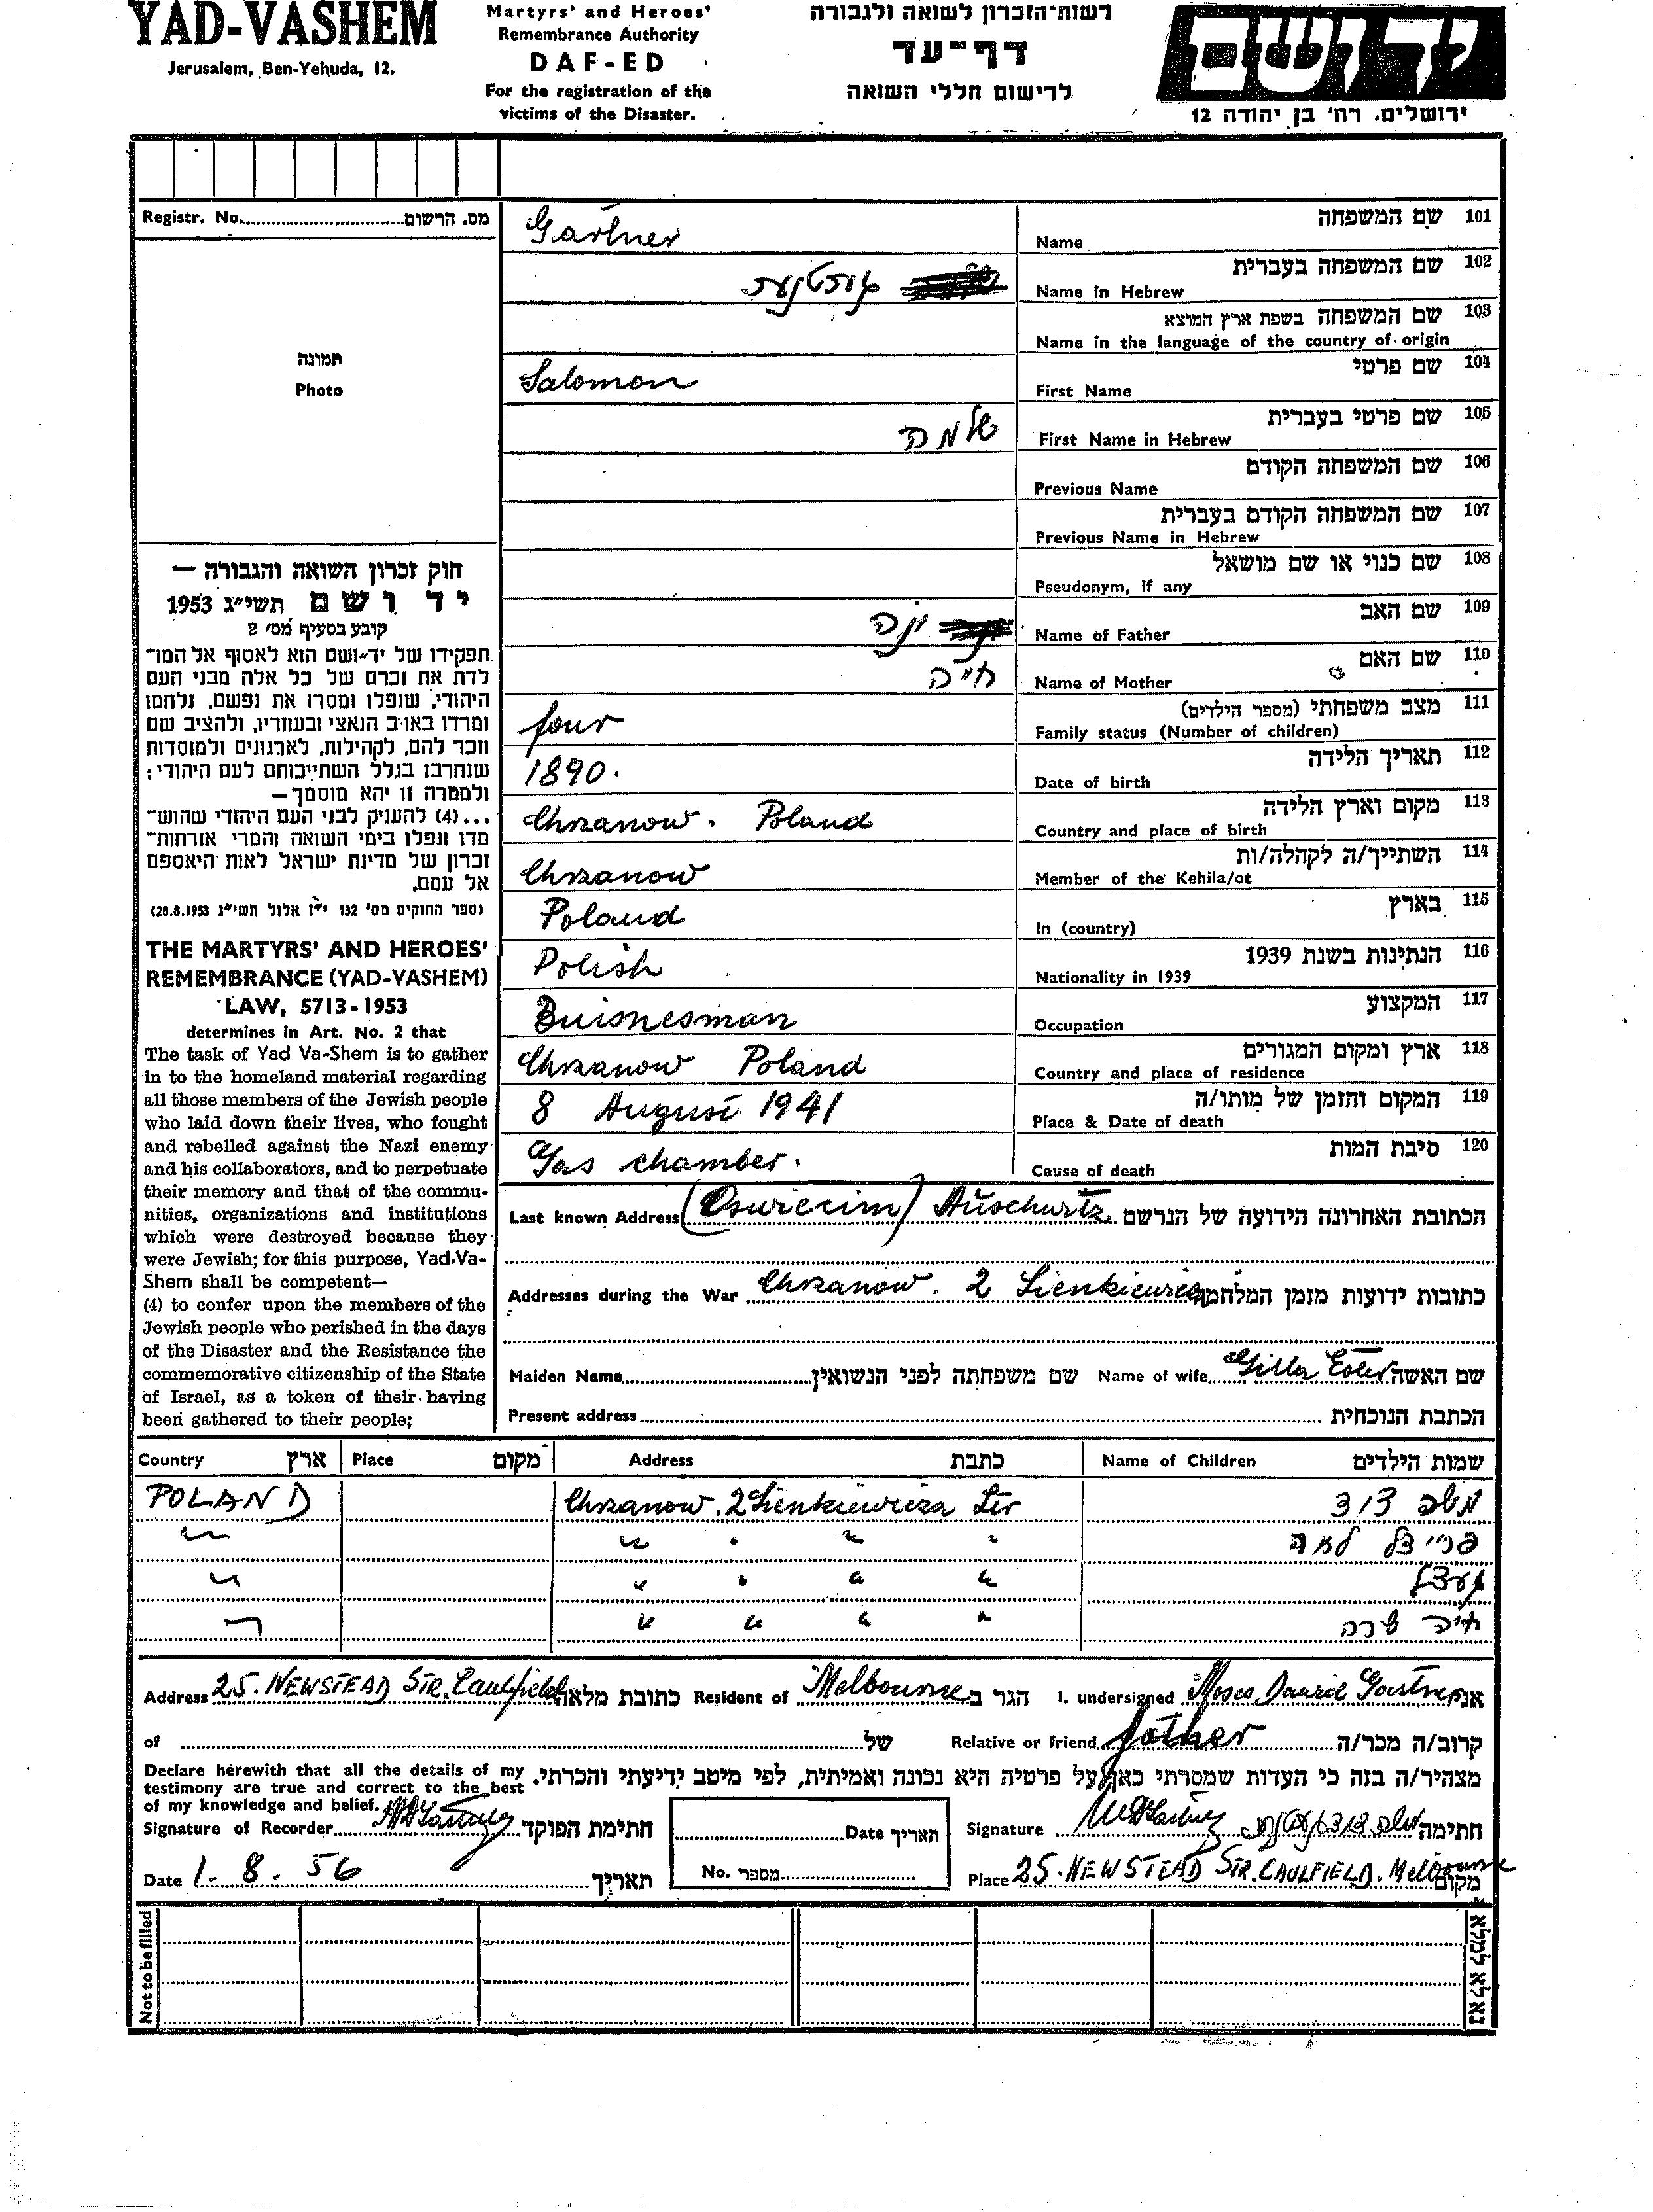 YAD-VASHEM
Jerusalem, Ben-Yehuda, 12.
Martyrs' and Heroes'
Remembrance Authority
DAF-ED
For the registration of the
victims of the Disaster.
רשות-הזכרון לשואה ולגבורה
דף-עד
לרישום חללי השואה
יד ושם
ירושלים, רח' בן יהודה 12
Registr. No. מס. הרשום
תמונה
Photo
חוק זכרון השואה והגבורה —
יד ושם תשי"ג 1953
קובע בסעיף מס' 2
תפקידו של יד-ושם הוא לאסוף אל המו־
לדת את זכרם של כל אלה מבני העם
היהודי, שנפלו ומסרו את נפשם, נלחמו
ומרדו באויב הנאצי ובעוזריו, ולהציב שם
וזכר להם, לקהילות, לארגונים ולמוסדות
שנחרבו בגלל השתייכותם לעם היהודי;
ולמטרה זו יהא מוסמך—
...(4) להעניק לבני העם היהודי שהוש־
מדו ונפלו בימי השואה והמרי אזרחות־
זכרון של מדינת ישראל לאות היאספם
אל עמם.
(ספר החוקים מס' 132 י"ז אלול תשי"ג 28.8.1953)
THE MARTYRS' AND HEROES'
REMEMBRANCE (YAD-VASHEM)
LAW, 5713-1953
determines in Art. No. 2 that
The task of Yad Va-Shem is to gather
in to the homeland material regarding
all those members of the Jewish people
who laid down their lives, who fought
and rebelled against the Nazi enemy
and his collaborators, and to perpetuate
their memory and that of the commu-
nities, organizations and institutions
which were destroyed because they
were Jewish; for this purpose, Yad-Va-
Shem shall be competent—
(4) to confer upon the members of the
Jewish people who perished in the days
of the Disaster and the Resistance the
commemorative citizenship of the State
of Israel, as a token of their having
been gathered to their people;
101 שם המשפחה
Name Gartner
102 שם המשפחה בעברית
Name in Hebrew גורטנער
103 שם המשפחה בשפת ארץ המוצא
Name in the language of the country of origin
104 שם פרטי
First Name Salomon
105 שם פרטי בעברית
First Name in Hebrew שלמה
106 שם המשפחה הקודם
Previous Name
107 שם המשפחה הקודם בעברית
Previous Name in Hebrew
108 שם כנוי או שם מושאל
Pseudonym, if any
109 שם האב
Name of Father יונה
110 שם האם
Name of Mother חיה
111 מצב משפחתי (מספר הילדים)
Family status (Number of children) four
112 תאריך הלידה
Date of birth 1890.
113 מקום וארץ הלידה
Country and place of birth Chrzanow. Poland
114 השתייך/ה לקהלה/ות
Member of the Kehila/ot Chrzanow
115 בארץ
In (country) Poland
116 הנתינות בשנת 1939
Nationality in 1939 Polish
117 המקצוע
Occupation Buisnesman
118 ארץ ומקום המגורים
Country and place of residence Chrzanow Poland
119 המקום והזמן של מותו/ה
Place & Date of death 8 August 1941
120 סיבת המות
Cause of death Gas chamber.
Last known Address (Oswiecim) Auschwitz הכתובת האחרונה הידועה של הנרשם
Addresses during the War Chrzanow. 2 Sienkiewicza כתובות ידועות מזמן המלחמה
Maiden Name שם משפחתה לפני הנשואין Name of wife Gilla Ester שם האשה
Present address הכתבת הנוכחית
Country ארץ Place מקום Address כתבת Name of Children שמות הילדים
POLAND Chrzanow. 2 Sienkiewicza Str משה דוד
" " " " " פריידל לאה
" " " " "
" " " " " חיה שרה
Address 25. NEWSTEAD STR. Caulfield כתובת מלאה Resident of Melbourne הגר ב I. undersigned Moses Dawid Gartner אני
of של Relative or friend father קרוב/ה מכר/ה
Declare herewith that all the details of my
testimony are true and correct to the best
of my knowledge and belief.
מצהיר/ה בזה כי העדות שמסרתי כאן על פרטיה היא נכונה ואמיתית, לפי מיטב ידיעתי והכרתי.
Signature of Recorder MDGartner חתימת הפוקד Date תאריך Signature MDGartner משה דוד גורטנער חתימה
Date 1. 8. 56 תאריך No. מספר Place 25. NEWSTEAD STR. CAULFIELD. Melbourne מקום
Not to be filled
נא לא למלא